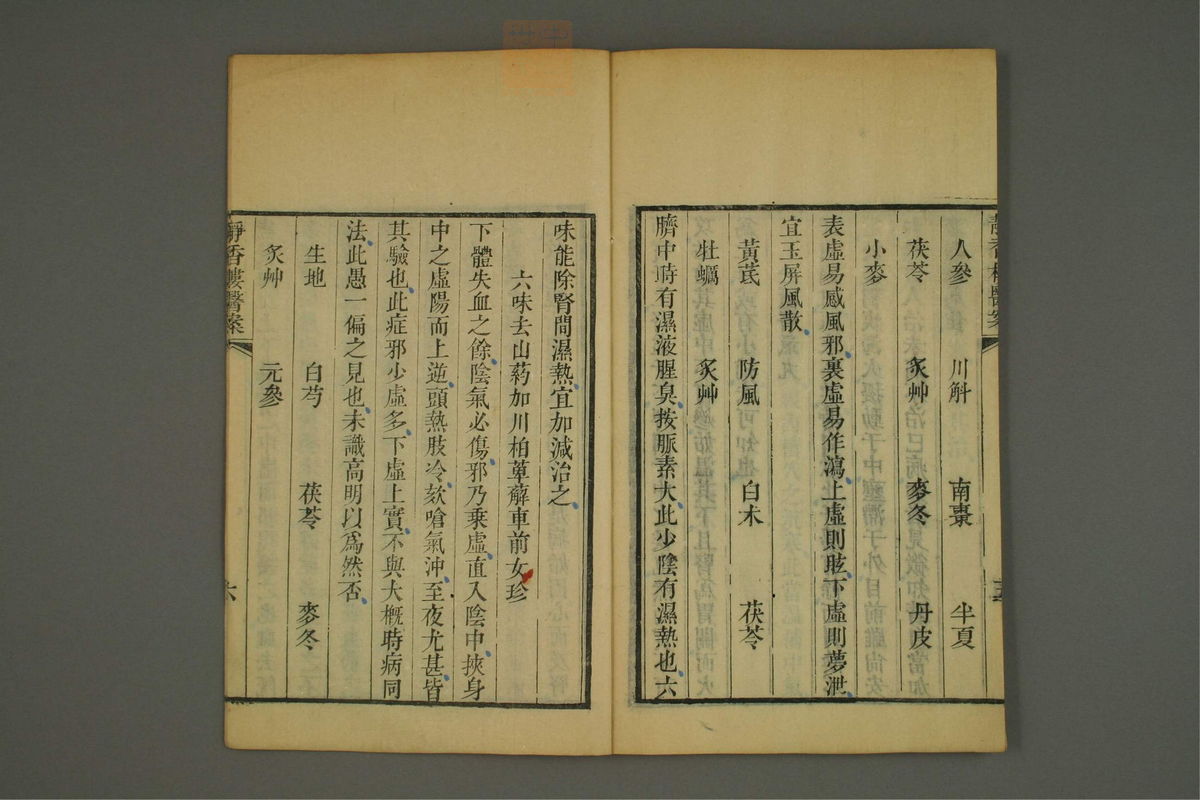 靜香樓醫案
人參 川斛 南棗 半夏
茯苓 炙艸 麥冬 丹皮
小麥
表虛易感風邪裏虛易作瀉上虛則眩下虛則夢泄
宜玉屏風散
黃芪 防風 白朮 茯苓
牡蠣 炙艸
臍中時有濕液腥臭按脈素大此少陰有濕熱也六
味能除腎間濕熱宜加減治之
六味去山葯加川柏萆薢車前女珍
下體失血之餘陰氣必傷邪乃乘虛直入陰中挾身
中之虛陽而上逆頭熱肢冷欬嗆氣沖至夜尤甚皆
其驗也此症邪少虛多下虛上實不與大概時病同
法此愚一偏之見也未識高明以爲然否
生地 白芍 茯苓 麥冬
炙艸 元參
靜香樓醫案
六